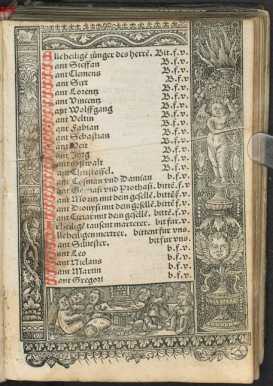 lle heilige jünger des herrē. Bit.f.v.
ant Steffan B.f.v.
ant Clemens B.f.v.
ant Sixt B.f.v.
ant Lorentz B.f.v.
ant Vincentz B.f.v.
ant Wolffgang B.f.v.
ant Veltin B.f.v.
ant Fabian B.f.v.
ant Sebastian B.f.v.
ant Veit B.f.v.
ant Jörg B.f.v.
ant Oßwalt B.f.v.
ant Christoffel. B.f.v.
ant Cosman vnd Damian b.f.v.
ant Geruasi vnd Prothasi. bittē.f.v.
ant Moritz mit dem gesellē. bittē f.v.
ant Dionysi mit dem gesellē. bittē.f.v.
ant mit dem gesellē. bittē.f.v.
heilige tausent marterer. bit für.v.
lle heiligen merterer. bittent fur vns.
ant Siluester. bit fur vns.
ant Leo b.f.v.
ant Niclaus b.f.v.
ant Martin b.f.v.
ant Gregori b.f.v.